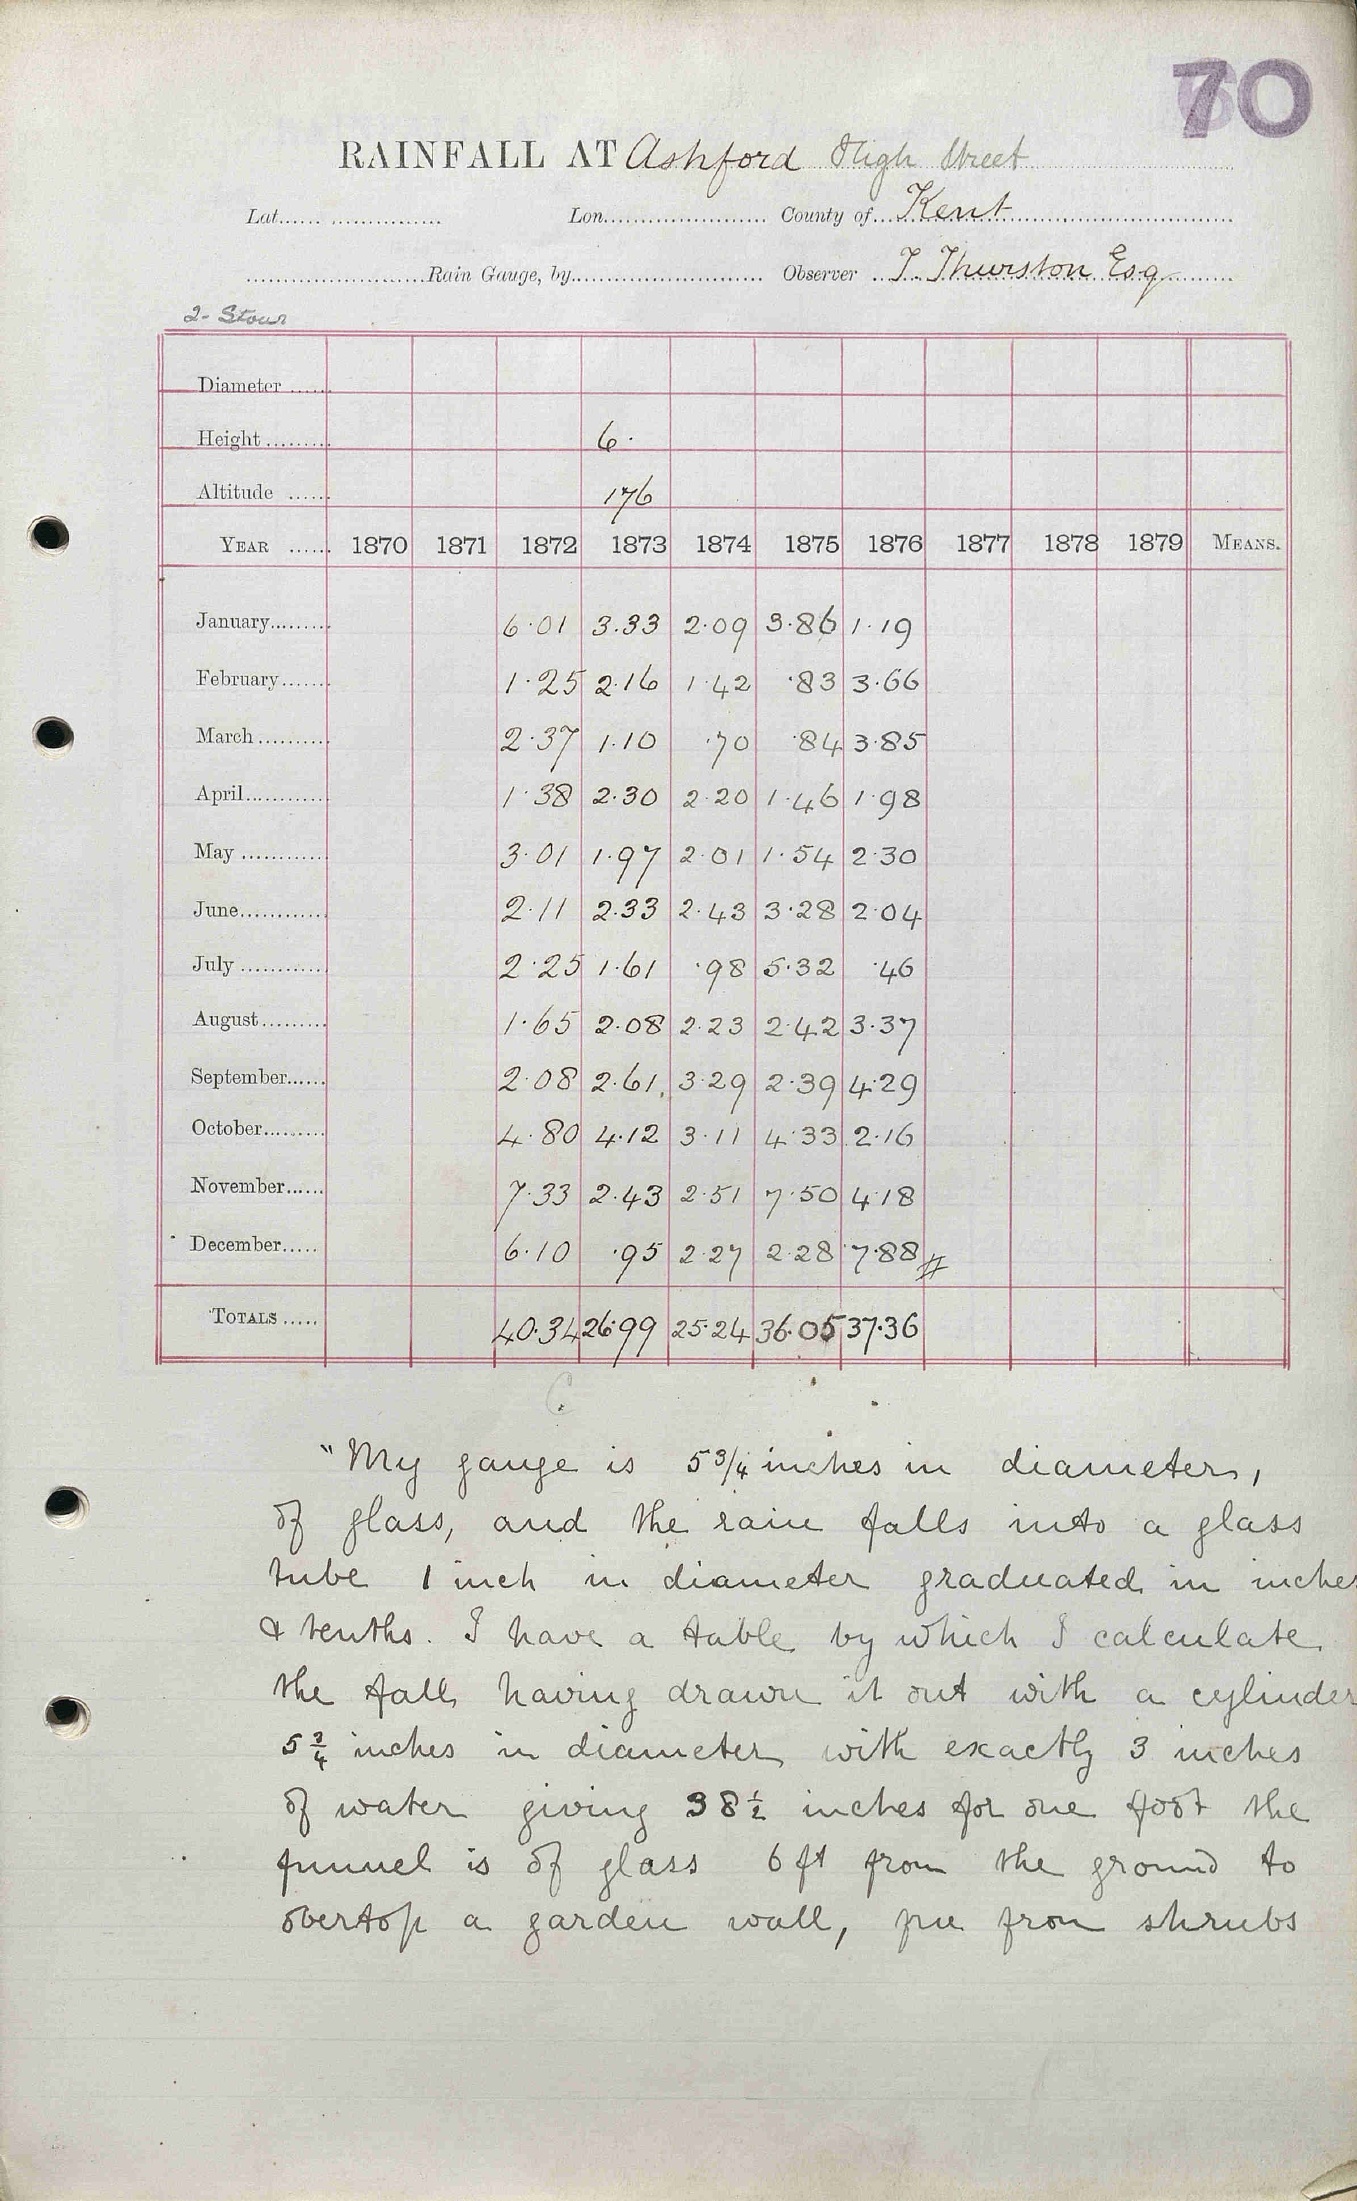 70
RAINFALL AT Ashford High Street
Lat. Lon. County of Kent
Rain Gauge, by Observer T. Thurston Esq
2 - Stour
Diameter
Height 6.
Altitude 176
YEAR 1870 1871 1872 1873 1874 1875 1876 1877 1878 1879 MEANS.
January 6.01 3.33 2.09 3.86 1.19
February 1.25 2.16 1.42 .83 3.66
March 2.37 1.10 .70 .84 3.85
April 1.38 2.30 2.20 1.46 1.98
May 3.01 1.97 2.01 1.54 2.30
June 2.11 2.33 2.43 3.28 2.04
July 2.25 1.61 .98 5.32 .46
August 1.65 2.08 2.23 2.42 3.37
September 2.08 2.61 3.29 2.39 4.29
October 4.80 4.12 3.11 4.33 2.16
November 7.33 2.43 2.51 7.50 4.18
December 6.10 .95 2.27 2.28 7.88 #
TOTALS 40.34 26.99 25.24 36.05 37.36
"My gauge is 5 3/4 inches in diameter,
of glass, and the rain falls into a glass
tube 1 inch in diameter graduated in inches
& tenths. I have a table by which I calculate
the fall having drawn it out with a cylinder
5 3/4 inches in diameter with exactly 3 inches
of water giving 38 1/2 inches for one foot the
funnel is of glass 6 ft from the ground to
overtop a garden wall, free from shrubs